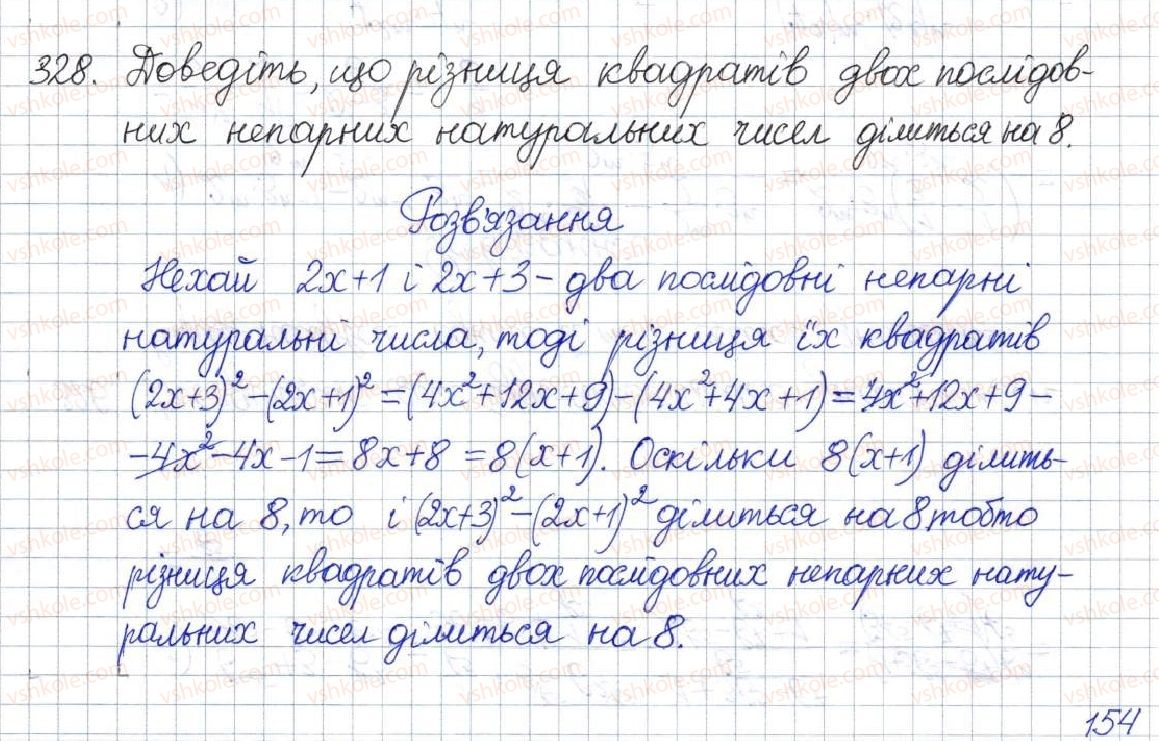 328. Доведіть, що різниця квадратів двох послідов-
них непарних натуральних чисел ділиться на 8.
Розв'язання
Нехай 2x+1 і 2x+3 – два послідовні непарні
натуральні числа, тоді різниця їх квадратів
(2x+3)²-(2x+1)²=(4x²+12x+9)-(4x²+4x+1)=4x²+12x+9-
-4x²-4x-1=8x+8=8(x+1). Оскільки 8(x+1) ділить-
ся на 8, то і (2x+3)²-(2x+1)² ділиться на 8 тобто
різниця квадратів двох послідовних непарних нату-
ральних чисел ділиться на 8.
154
vshkole.com